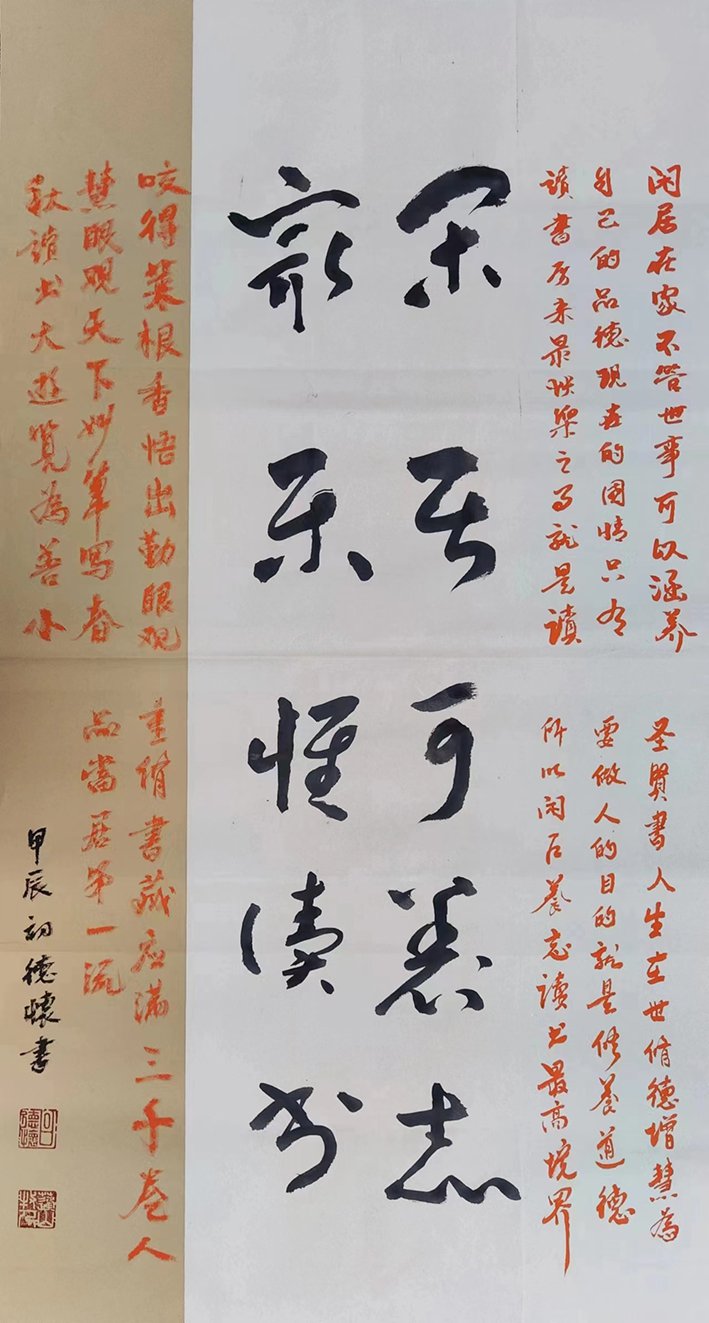 闲居在家不管世事可以涵养
自己的品德现在的国情只有
读书原来最快乐之事就是读
圣贤書人生在世脩德增慧為
要做人的目的就是修养道德
所以闲居养志读书最高境界
闲居可养志
最乐惟读书
咬得菜根香悟出勤眼观
慧眼观天下妙笔写春
秋读书大遊览為善小
重脩書藏应满三千卷人
品當居第一流
甲辰初德懷書